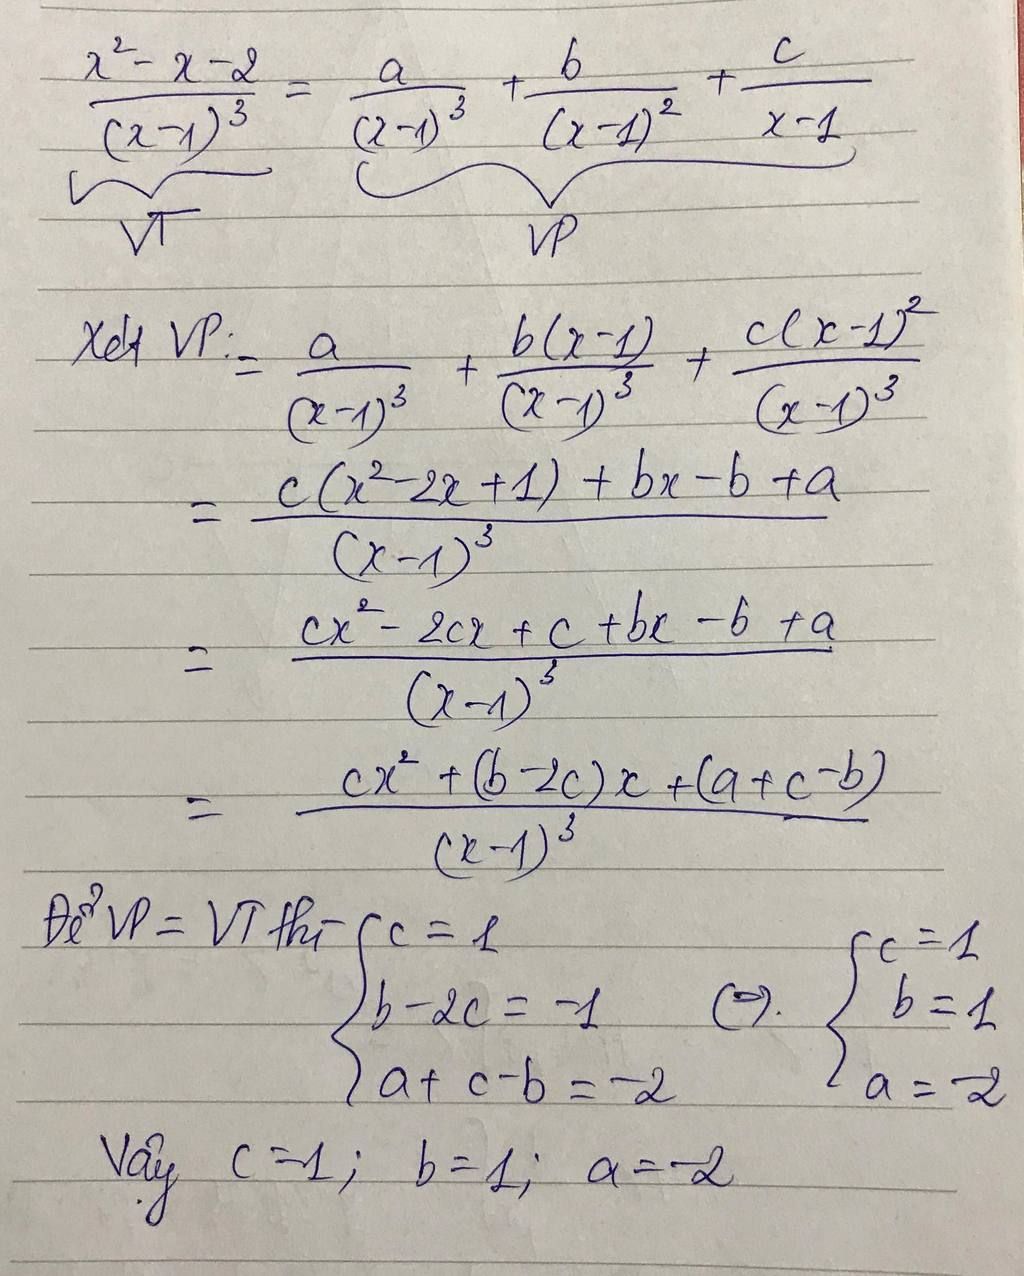 (x² - x - 2)/(x-1)³ = a/(x-1)³ + b/(x-1)² + c/(x-1)
VT VP
Xét VP: = a/(x-1)³ + b(x-1)/(x-1)³ + c(x-1)²/(x-1)³
= (c(x²-2x+1) + bx - b + a)/(x-1)³
= (cx² - 2cx + c + bx - b + a)/(x-1)³
= (cx² + (b-2c)x + (a+c-b))/(x-1)³
Để VP = VT thì { c = 1 (⇔). { c = 1
b - 2c = -1 b = 1
a + c - b = -2 a = -2
Vậy c = 1; b = 1; a = -2